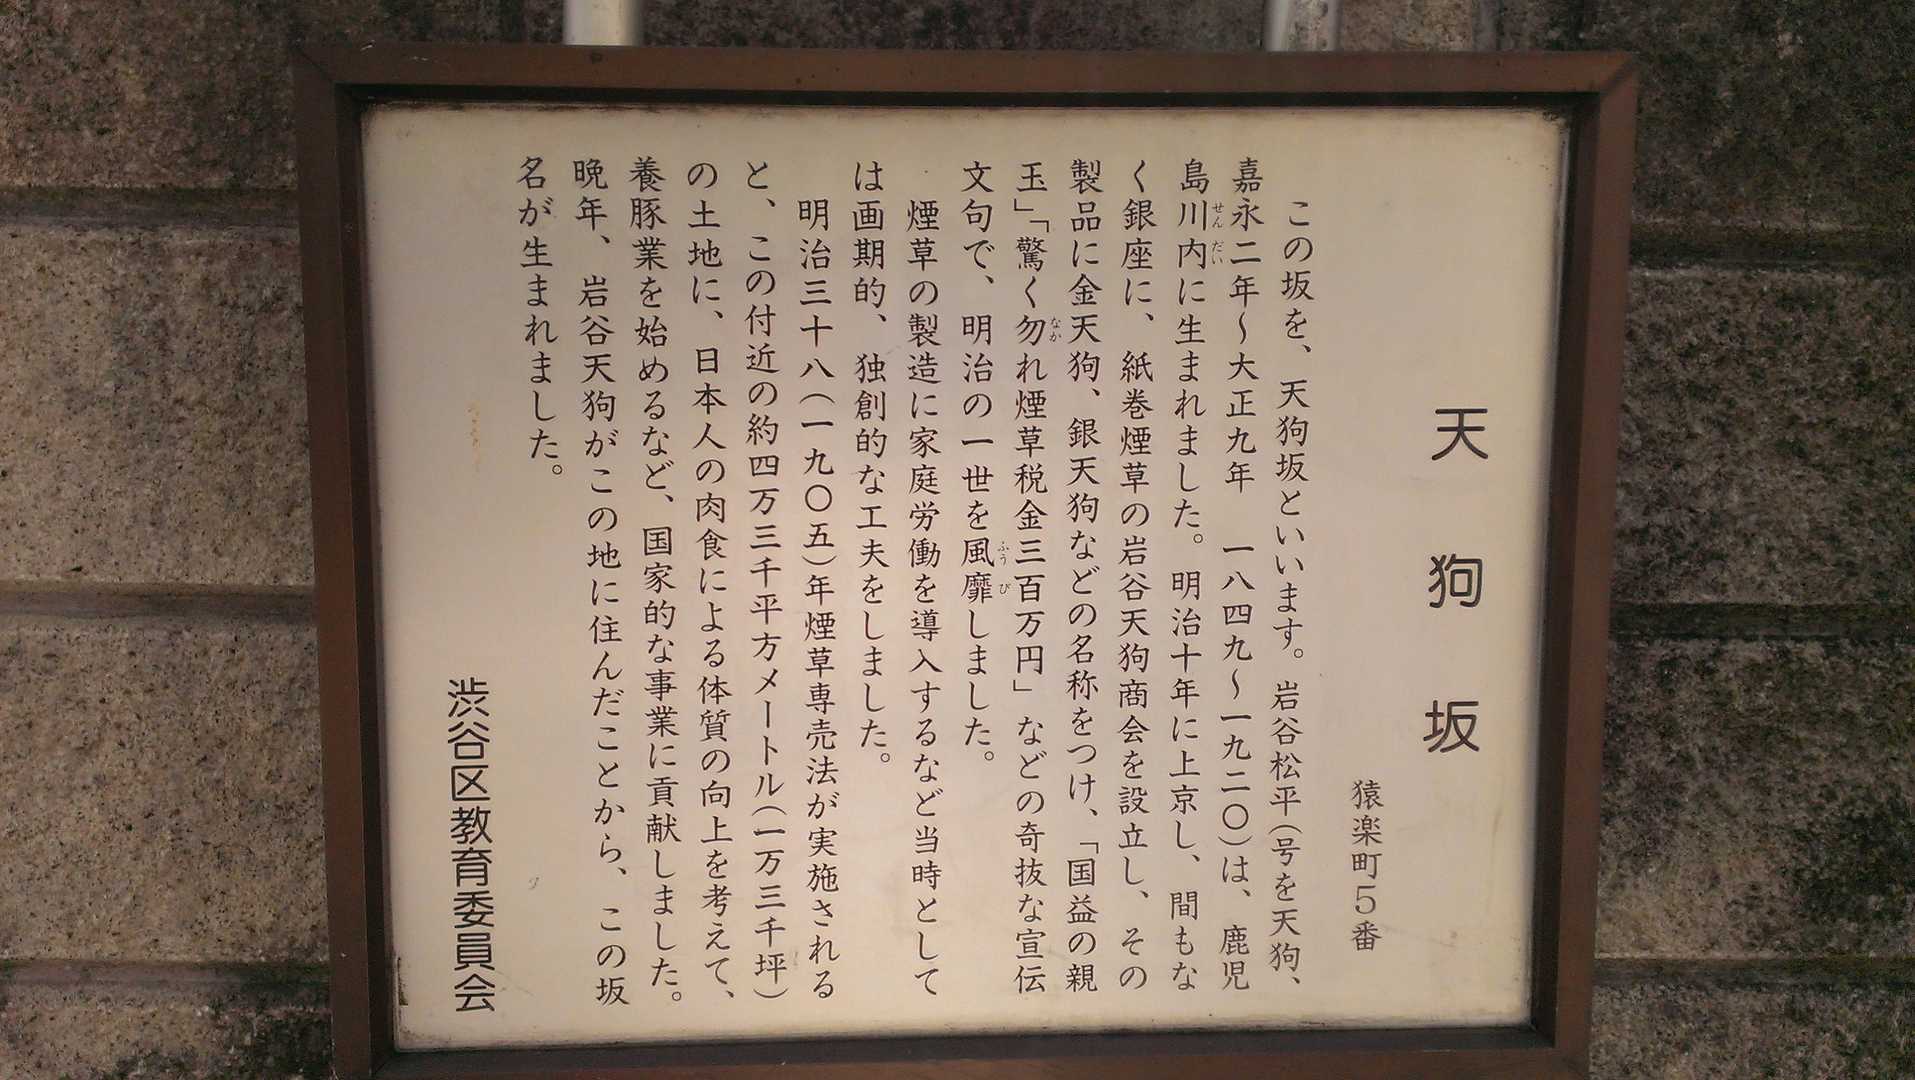 天狗坂
猿楽町5番
この坂を、天狗坂といいます。岩谷松平(号を天狗、
嘉永二年〜大正九年 一八四九〜一九二〇)は、鹿児
島川内に生まれました。明治十年に上京し、間もな
せんだい
く銀座に、紙巻煙草の岩谷天狗商会を設立し、その
製品に金天狗、銀天狗などの名称をつけ、「国益の親
玉」「驚く勿れ煙草税金三百万円」などの奇抜な宣伝
なか
文句で、明治の一世を風靡しました。
ふうび
煙草の製造に家庭労働を導入するなど当時として
は画期的、独創的な工夫をしました。
明治三十八(一九〇五)年煙草専売法が実施される
と、この付近の約四万三千平方メートル(一万三千坪)
の土地に、日本人の肉食による体質の向上を考えて、
養豚業を始めるなど、国家的な事業に貢献しました。
晩年、岩谷天狗がこの地に住んだことから、この坂
名が生まれました。
渋谷区教育委員会